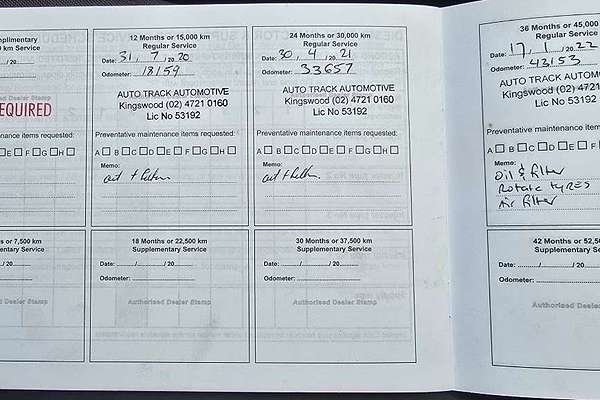 mplimentary
0 km Service
/ 20
EQUIRED
ntenance items requested:
E F G H
12 Months or 15,000 km
Regular Service
Date: 31 / 7 / 20 20
Odometer: 18159
AUTO TRACK AUTOMOTIVE
Kingswood (02) 4721 0160
Lic No 53192
Preventative maintenance items requested:
A B C D E F G H
Memo:
24 Months or 30,000 km
Regular Service
Date: 30 / 4 / 20 21
Odometer: 33657
AUTO TRACK AUTOMOTIVE
Kingswood (02) 4721 0160
Lic No 53192
Preventative maintenance items requested:
A B C D E F G H
Memo:
36 Months or 45,000
Regular Service
Date: 17 / 1 / 20 22
Odometer: 43153
AUTO TRACK AUTOM
Kingswood (02) 4721
Lic No 53192
Preventative maintenance items reque
A B C D E F
Memo:
oil & filter
Rotate tyres
Air filter
s or 7,500 km
mentary Service
/ 20
ed Dealer Stamp
18 Months or 22,500 km
Supplementary Service
Date: / / 20
Odometer:
Authorised Dealer Stamp
30 Months or 37,500 km
Supplementary Service
Date: / / 20
Odometer:
Authorised Dealer Stamp
42 Months or 52,50
Supplementary Servi
Date: / / 20
Odometer:
Authorised Dealer